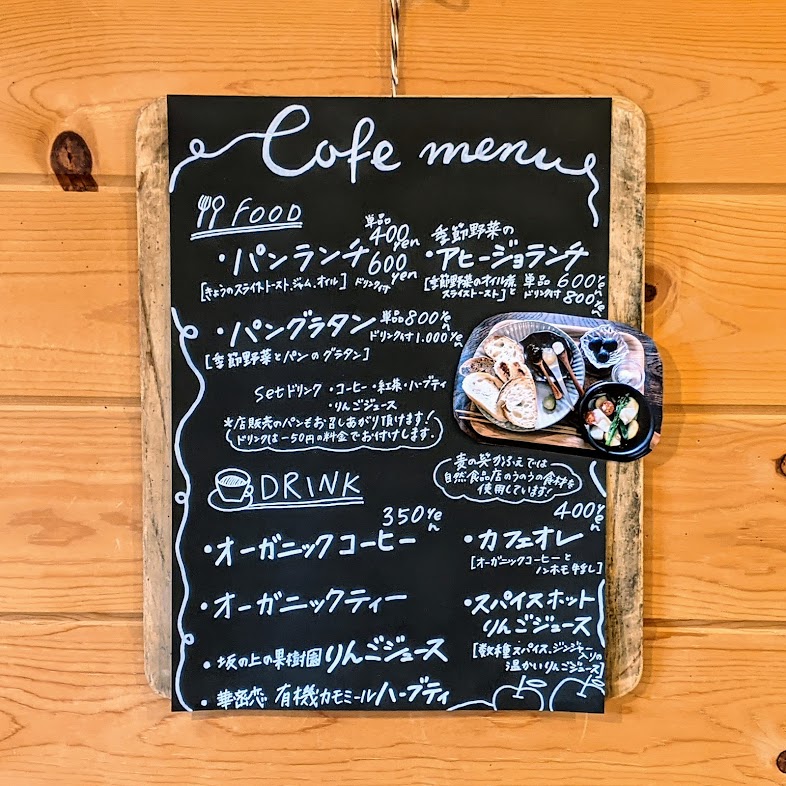 Cafe menu
FOOD
・パンランチ 単品 400yen
600yen
[きょうのスライストースト、ジャム、オイル] ドリンク付
季節野菜の
・アヒージョランチ
[季節野菜のオイル煮 単品 600yen
スライストースト]と ドリンク付 800yen
・パングラタン 単品 800yen
ドリンク付 1.000yen
[季節野菜とパンのグラタン]
setドリンク ・コーヒー・紅茶・ハーブティ
・りんごジュース
*店販売のパンもお召しあがり頂けます!
ドリンクは-50円の料金でお付けします。
麦の笑かふぇでは
自然食品店のうのうの食材を
使用しています!
DRINK
350yen
・オーガニックコーヒー
・オーガニックティー
・坂の上の果樹園 りんごジュース
・華密恋 有機カモミールハーブティ
400yen
・カフェオレ
[オーガニックコーヒーと
ノンホモ牛乳]
・スパイスホット
りんごジュース
[数種スパイス、ジンジャー入りの
温かいりんごジュース]